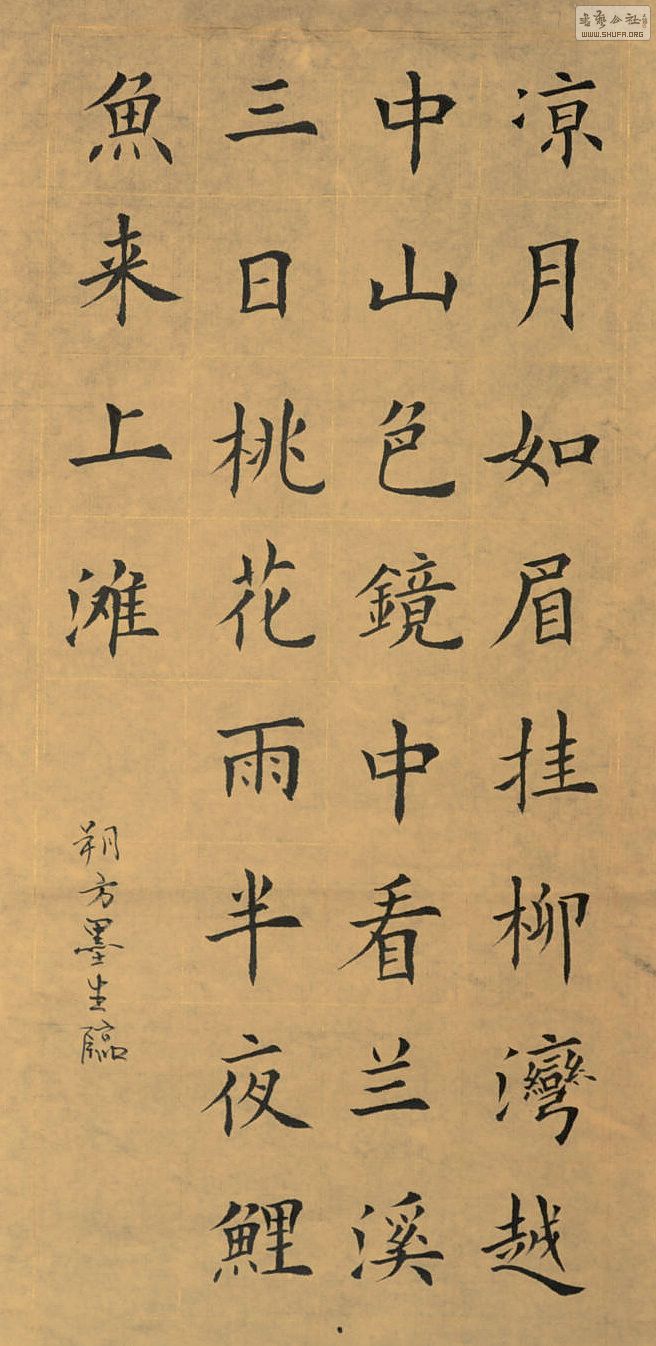 凉月如眉挂柳灣越
中山色鏡中看兰溪
三日桃花雨半夜鯉
魚来上滩
朔方墨生臨
WWW.SHUFA.ORG